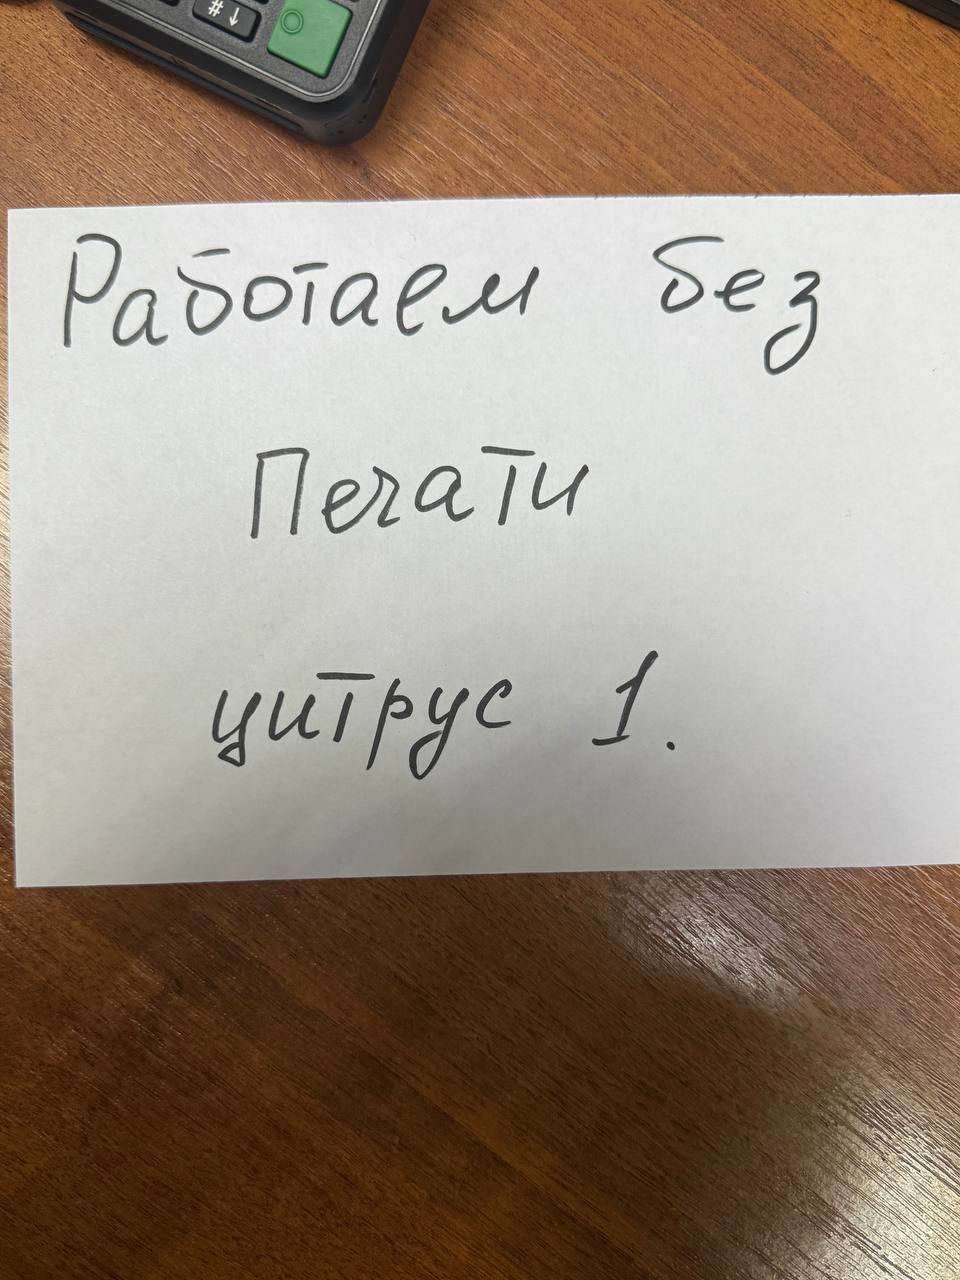 # ↓
Работаем без
Печати
цитрус 1.